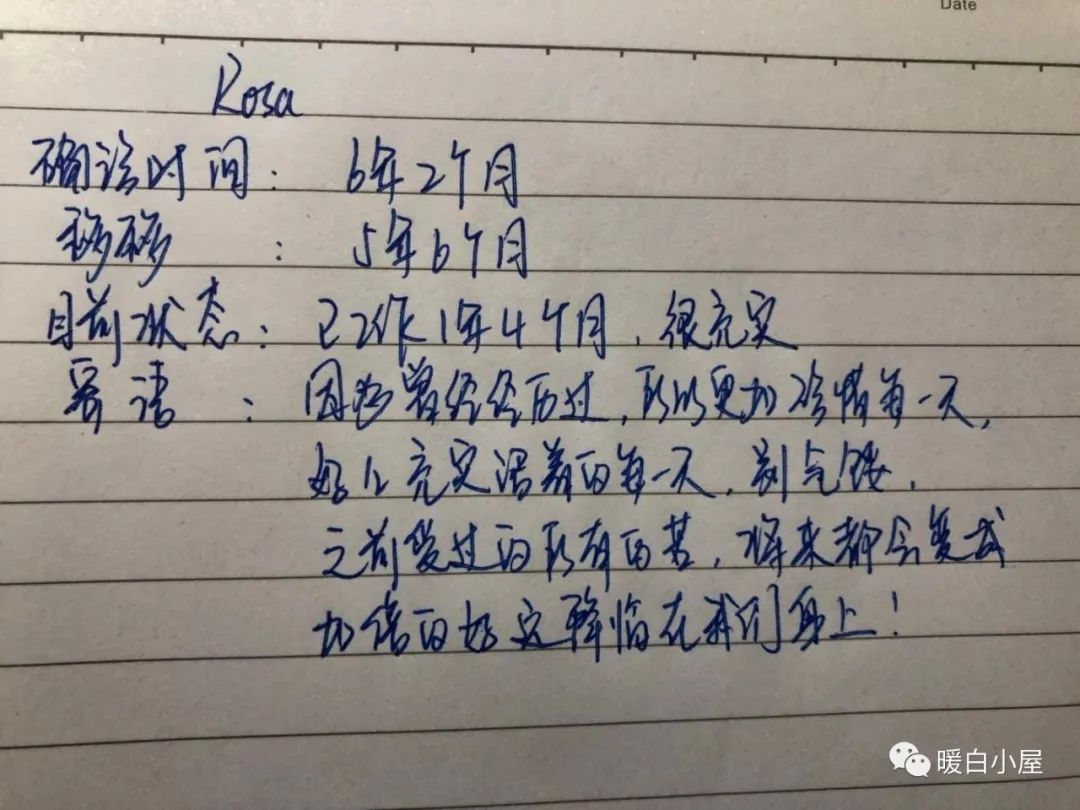 Date
Rosa
确诊时间： 6年2个月
移植 ： 5年6个月
目前状态： 已工作1年4个月，很充实
寄语 ： 因为曾经经历过，所以更加珍惜每一天，
好好充实活着的每一天，别气馁，
之前受过的所有的苦，将来都会变成
加倍的好运降临在我们身上！
暖白小屋